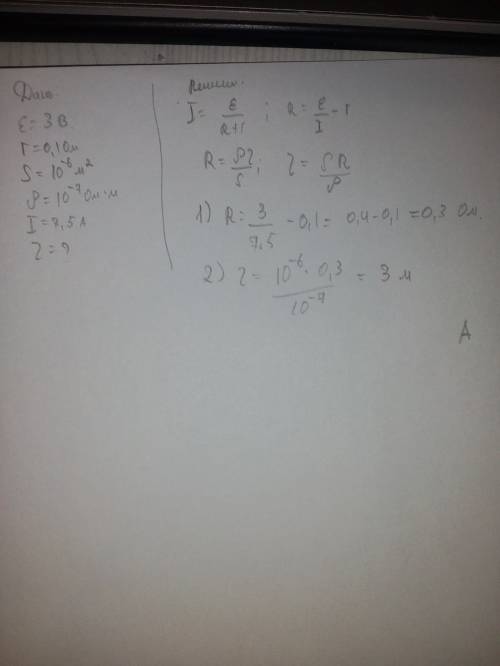 Дано:
ε = 3 В.
r = 0,1 Ом
S = 10⁻⁶ м²
ρ = 10⁻⁷ Ом·м
I = 7,5 А
l = ?
Решение.
I = ε/(R+r) ; R = ε/I − r
R = ρl/S ; l = SR/ρ
1) R = 3/7,5 − 0,1 = 0,4 − 0,1 = 0,3 Ом.
2) l = 10⁻⁶ · 0,3/10⁻⁷ = 3 м
А